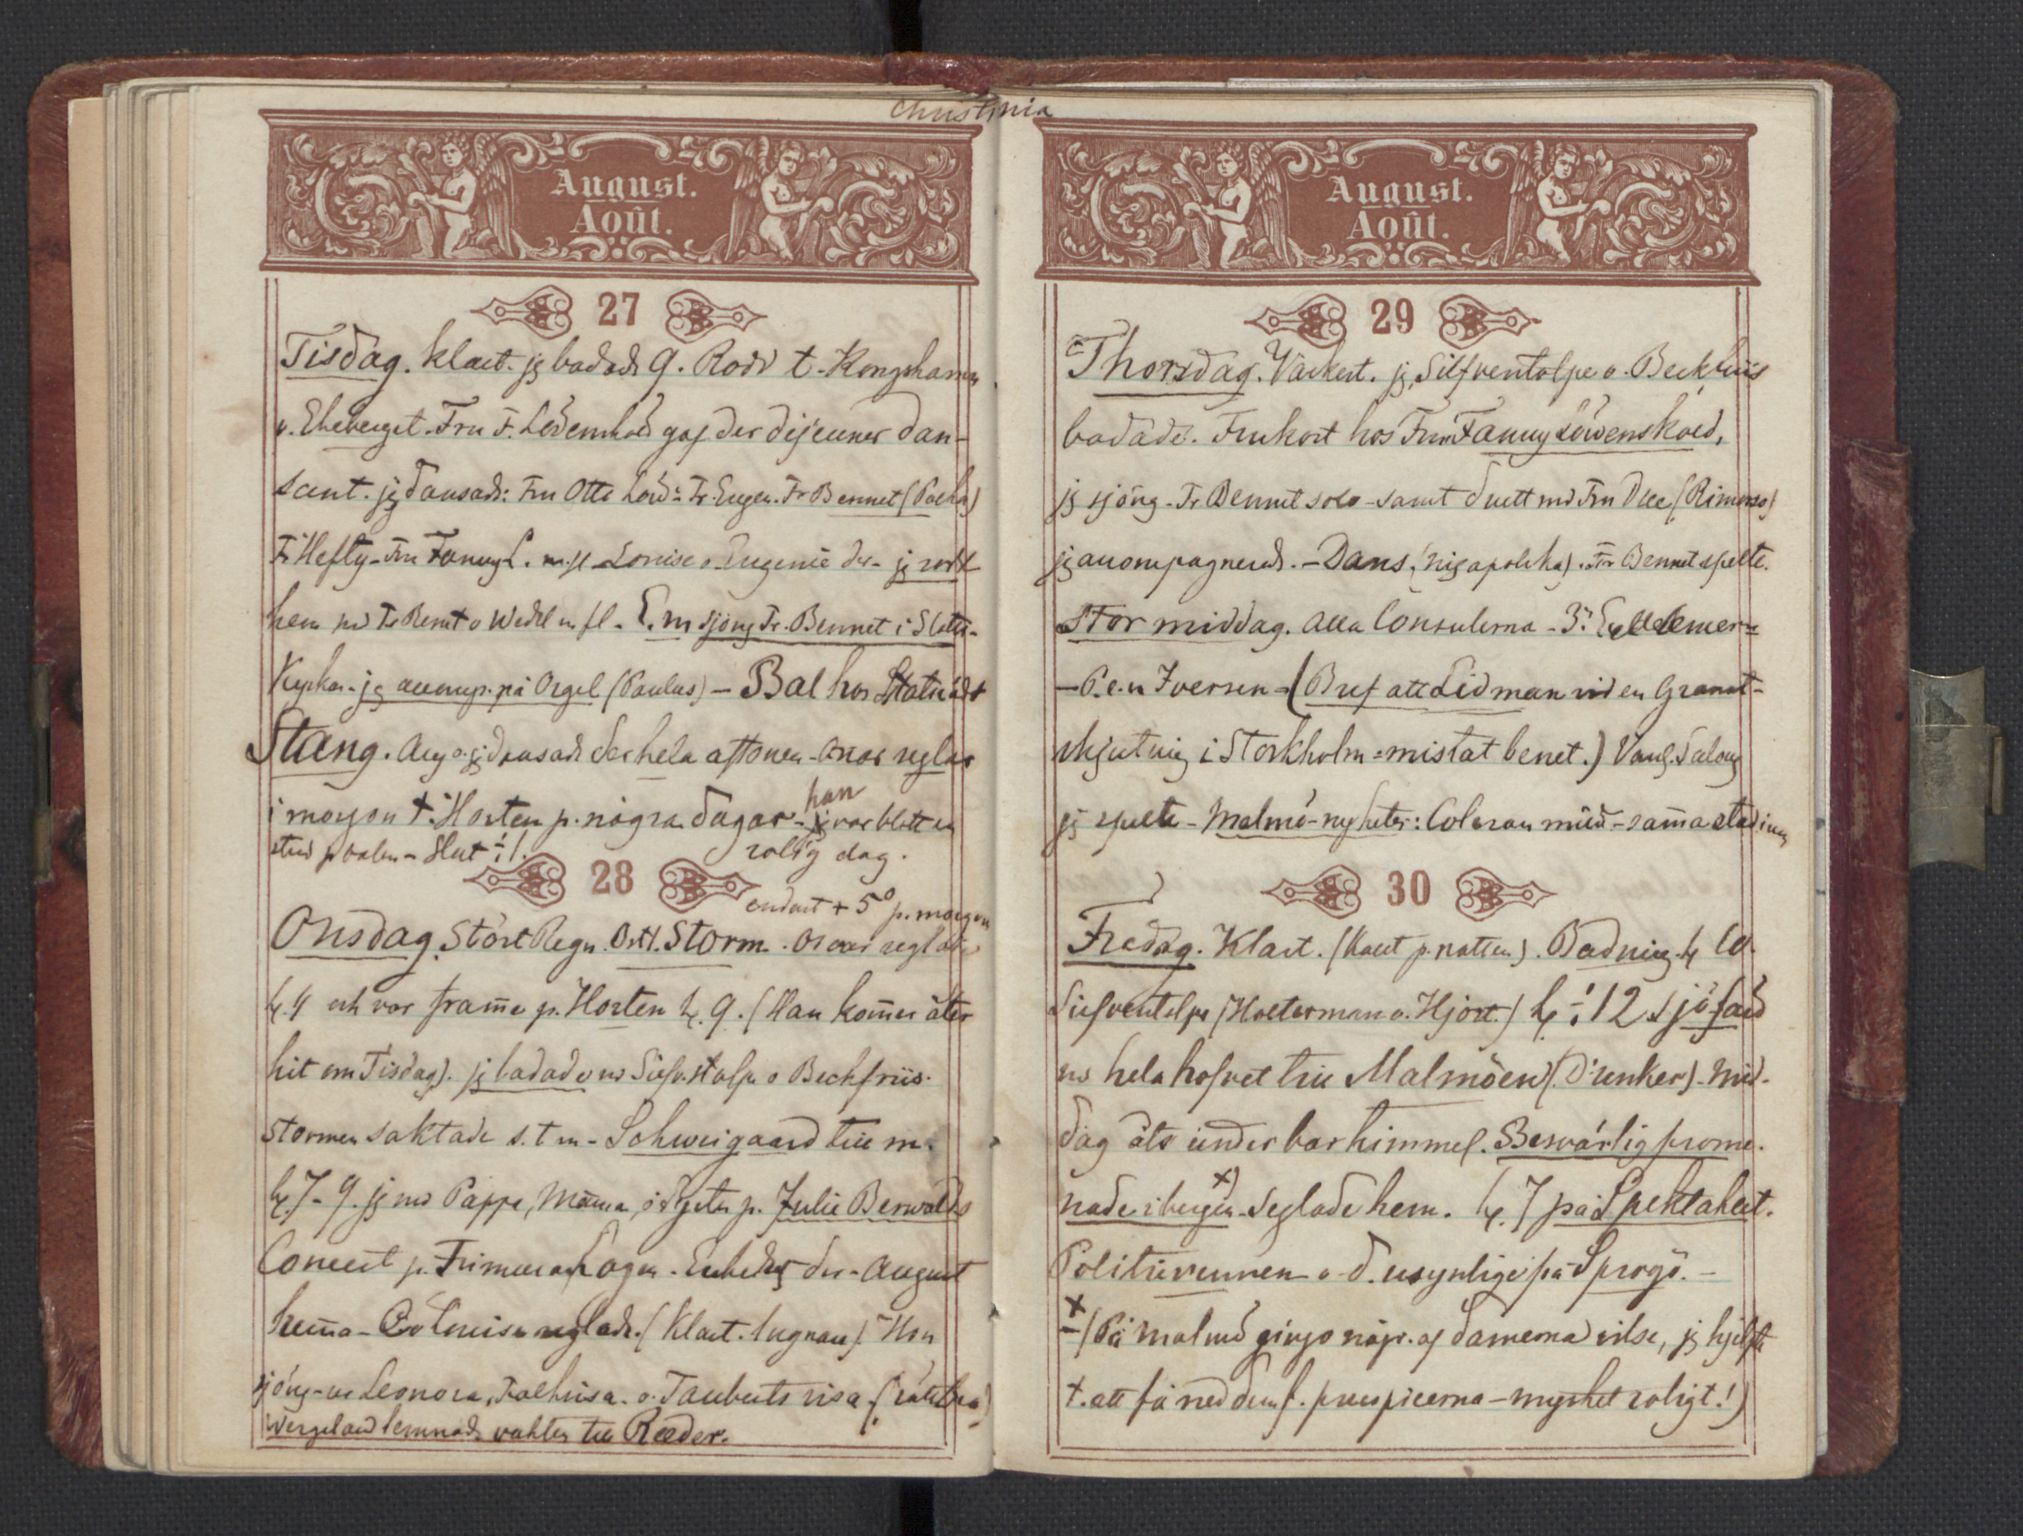 Christinia
August.
Août.
27
Tisdag. klart. jg badade 9. Rodd t. Kongshamn
o. Ekeberget. Fru F. Lövenskold gaf der dejeuner dan-
sant. jg dansade: Fru Otto Löv: Fr. Eugen. Fr Bennet (Polka)
Fr Hefty - Fru Fanny L. m. fl. Louise o Eugenie der - jg rodt
hem md Fr Bennt o Wedel m fl - E.m sjöng Fr. Bennet i Slotts-
Kyrkan - jg accomp. på Orgel (Paulus) - Bal hos Statsrådt
Stang. Aug o. jg dansade der hela aftonen - Oscar seglar
i morgon t. Horten p. några dagar - han var blott en
stund p balen - Slut ½ 1. rolig dag.
28
endast + 5° p. morgon
Onsdag. Stört Regn. Ostl. Storm. Oscar seglade
kl. 4 och var framme p. Horten kl. 9. (Han kommer åter
hit om Tisdag). jg badade md Silfverstolpe o Beckfriis.
Stormen saktade s. t m - Schweigaard till m.
kl. 7 - 9. jg md Pappa, Mamma, o dgtn p. Julie Berwalds
Concert p. Frimurare Logen - der - August
hemma - Louise seglade. (Klart. lugnar). Hon
sjöng - ur Leonora, Tralhusa. o. Tauberts visa (rätt bra)
Wergeland lemnade vakten till Ræder.
August.
Août.
29
Thorsdag. Vackert. jg, Silfverstolpe o. Beckfriis
badade. Frukost hos Fru Fanny Lövenskold,
jg sjöng - Fr Bennet solo - samt duett md Fru Dee (Rimorso)
jg accompagnerade. - Dans, (nigapolska). Fr Bennet spelte.
Stor middag. Alla Consulerna - 3:
- P. e. n Iversen - (Bref att Lidman vid en Granat-
skjutning i Stockholm = mistat benet.) Vanl. Salong
jg spelte - Malmö-nyheter: Coleran mild - samma stadium
30
Fredag. Klart. (Kallt p. natten). Badning kl 10.
Silfverstolpe (Holterman o. Hjort.) kl ½ 12 sjöfärd
md hela hofvet till Malmöen (Dunker) - Mid-
dag åts under bar himmel. Besvärlig prome-
nade i bergen x) - Seglade hem. kl. 7 på Spektaklet.
Politivennen o - d. usynlige på Sprogö. -
x - (På Malmö gingo någr. af damerna vilse, jg hjelpte
t. att få ned dem f. precipicerna - mycket roligt!)